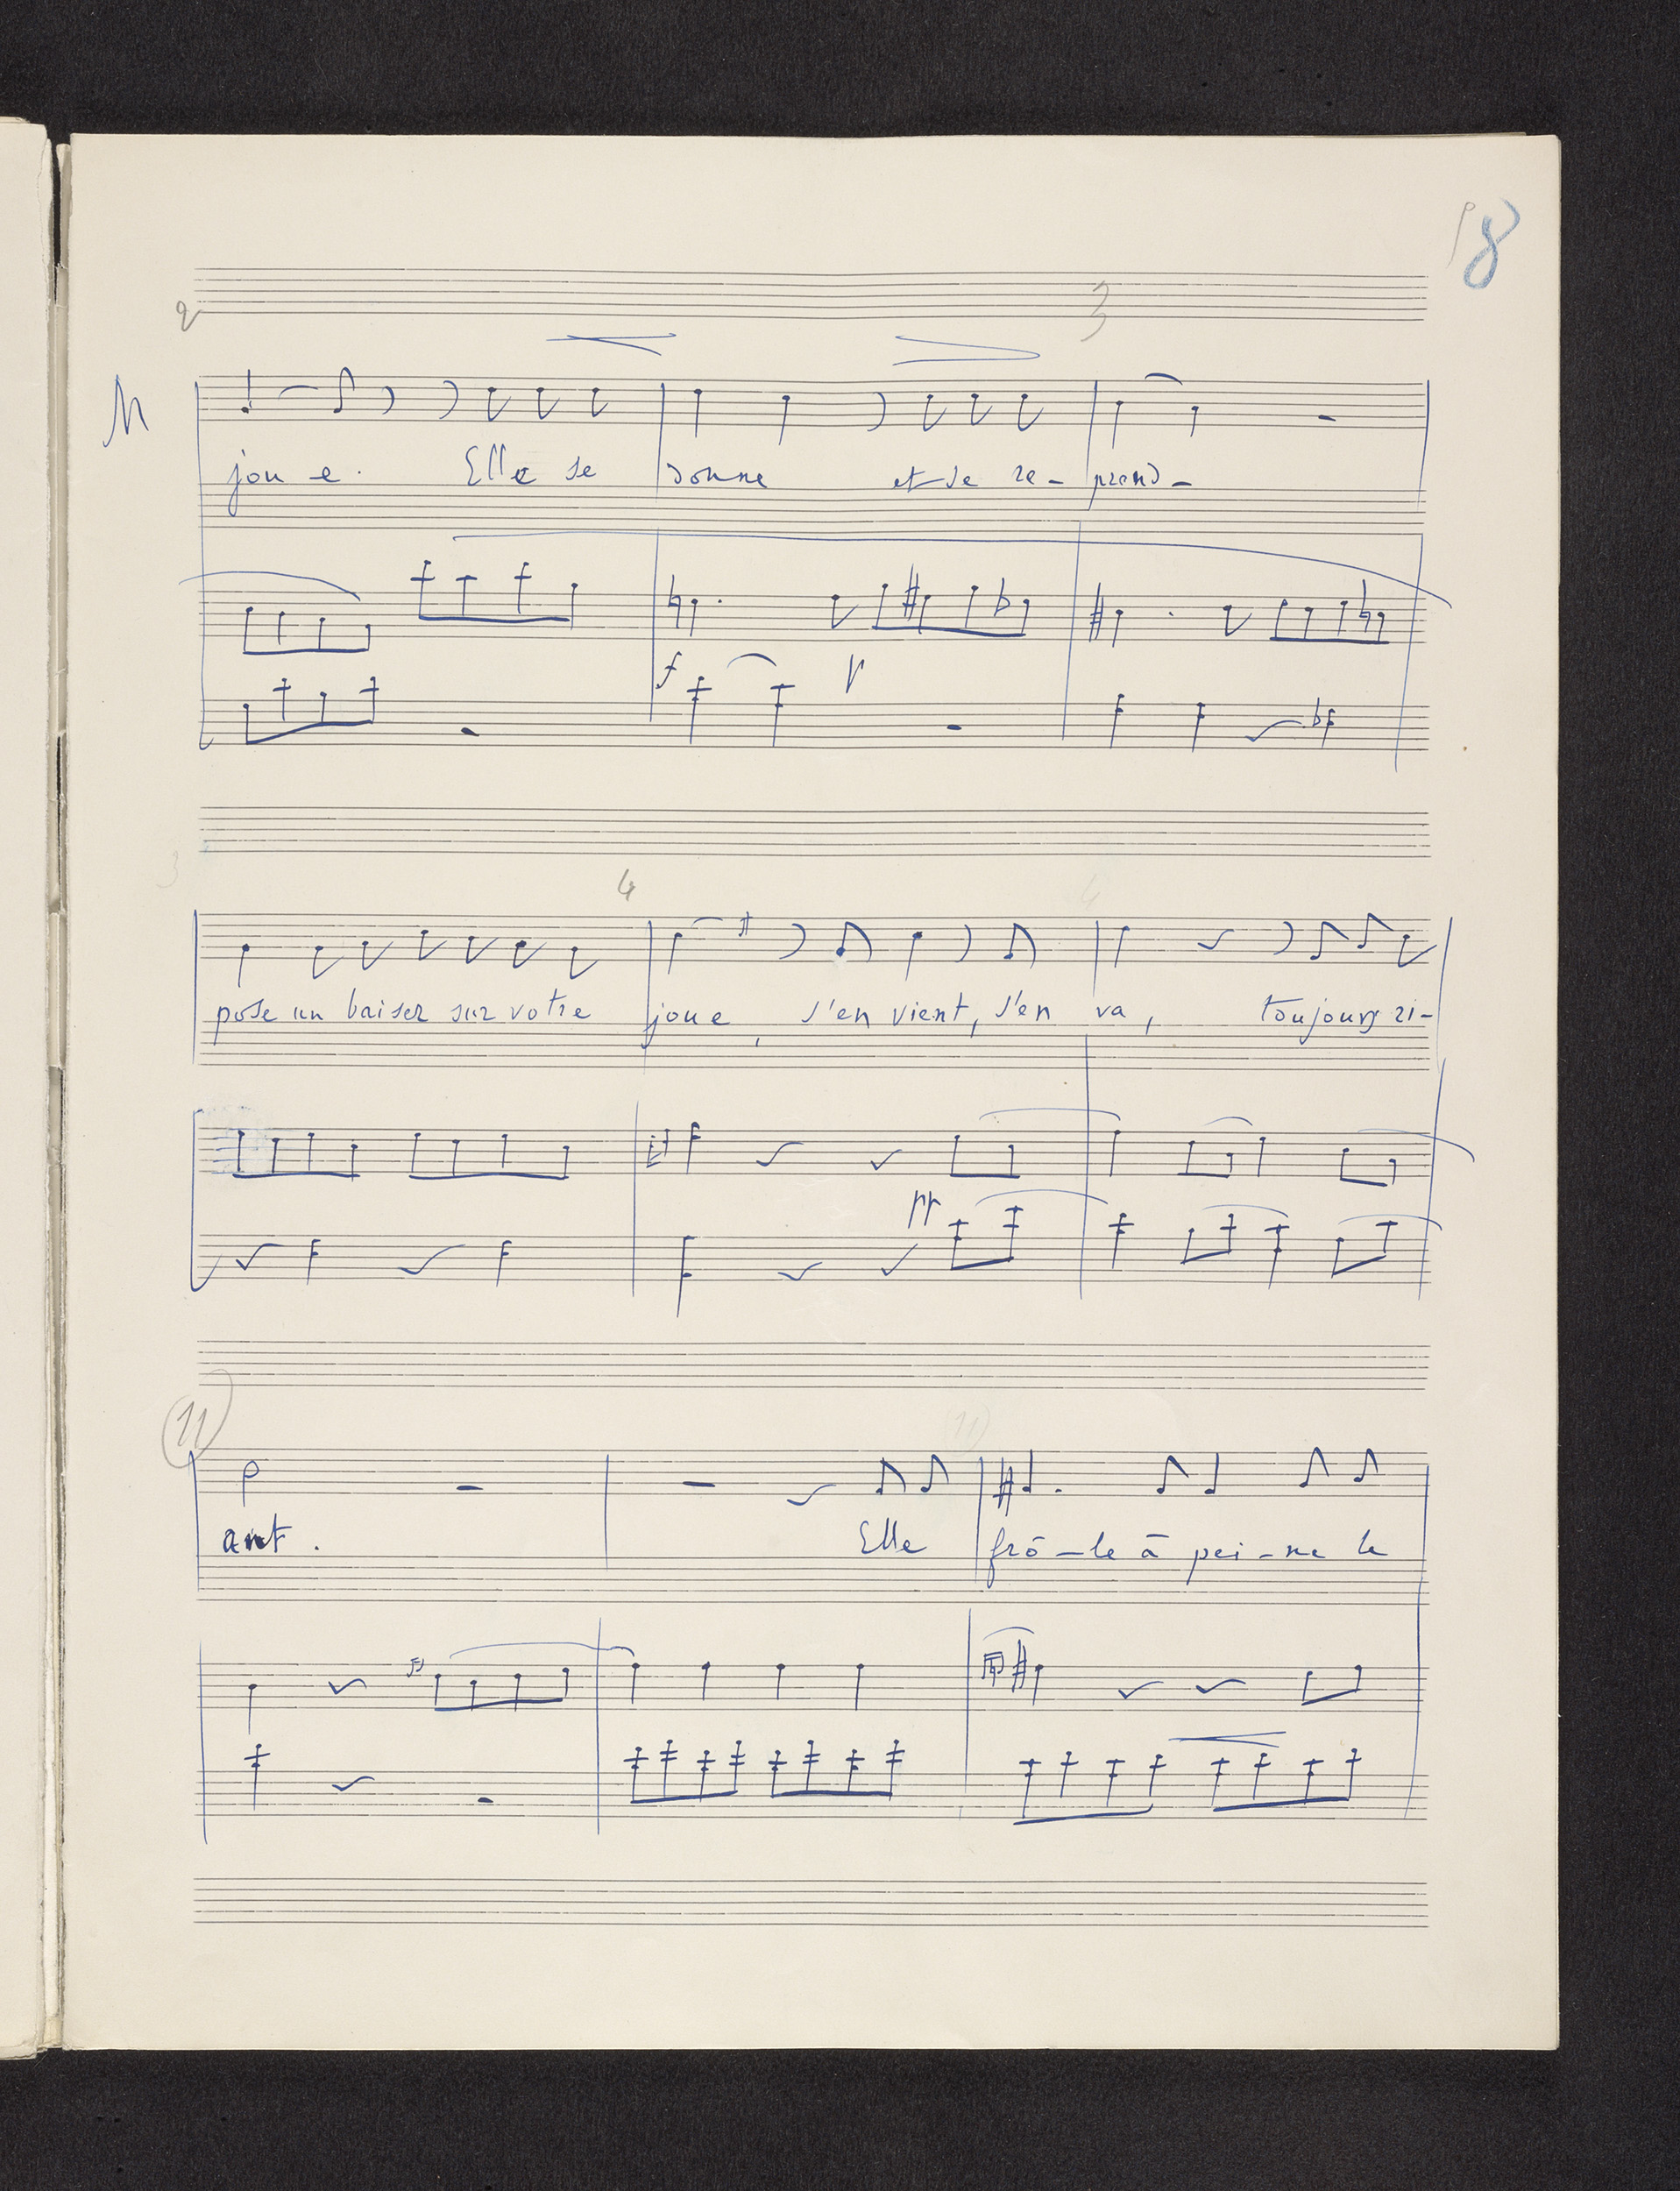 8
2 3
M
jou-e. Elle se donne et se re-prend-
f p
3 4 4
pose un baiser sur votre joue, s'en vient, s'en va, toujours ri-
pp
11 11
ant. Elle frô-le à pei-ne le